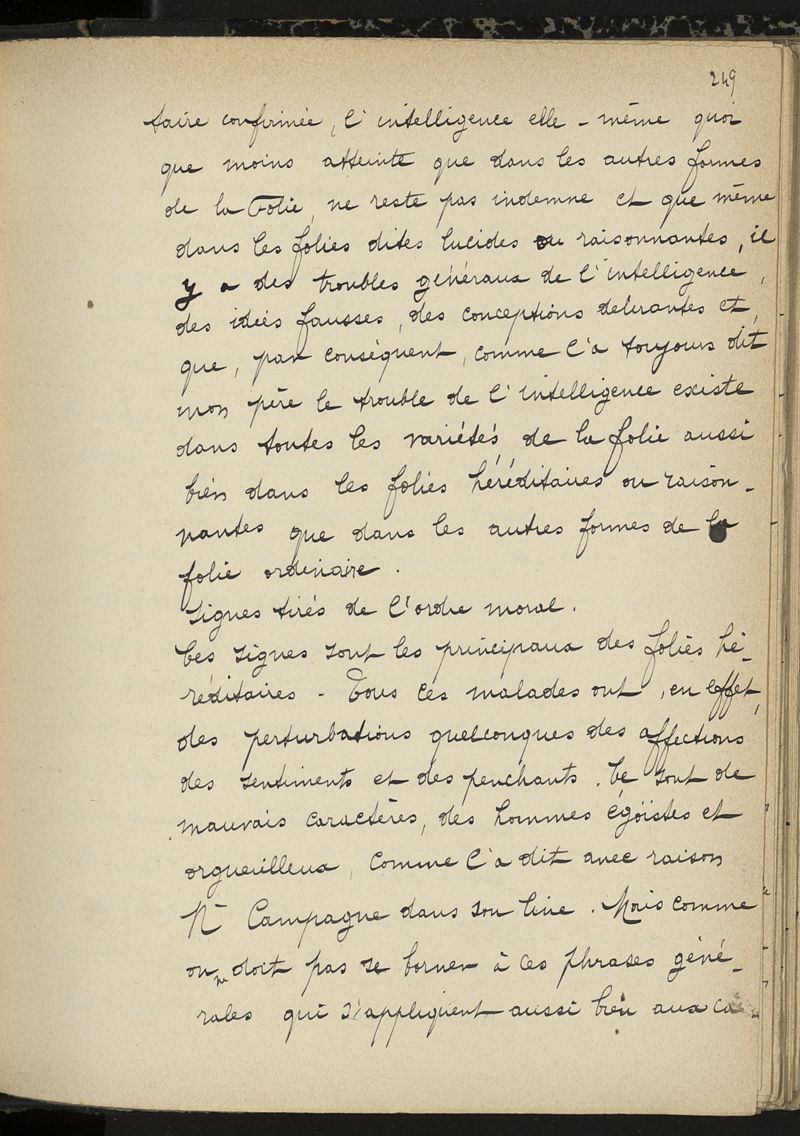 249
taire confirmée, l'intelligence elle-même quoi
que moins atteinte que dans les autres formes
de la Folie, ne reste pas indemne et que même
dans les folies dites lucides ou raisonnantes, il
y a des troubles généraux de l'intelligence,
des idées fausses, des conceptions delirantes et,
que, par conséquent, comme l'a toujours dit
mon père le trouble de l'intelligence existe
dans toutes les variétés de la folie aussi
bien dans les folies héréditaires ou raison-
nantes que dans les autres formes de la
folie ordinaire.
Signes tirés de l'ordre moral.
Ces signes sont les principaux des folies hé-
réditaires - Tous ces malades ont, en effet,
des perturbations quelconques des affections
des sentiments et des penchants. Ce sont de
mauvais caractères, des hommes égoïstes et
orgueilleux, comme l'a dit avec raison
Campagne dans son livre. Mais comme
on ne doit pas se borner à ces phrases géné-
rales qui s'appliquent aussi bien aux